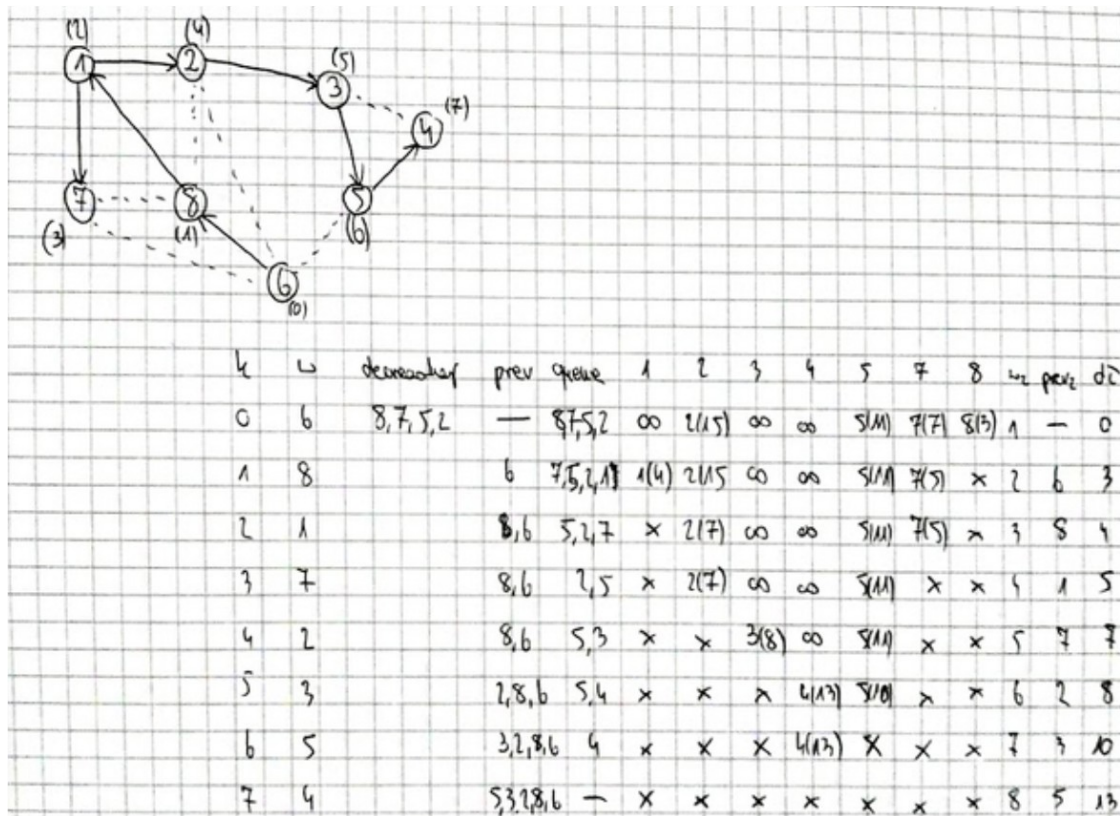 (2) (4)
1 2 (5)
3 (7)
4
7 8 5
(3) (1) (6)
6
(0)
k w prev queue 1 2 3 4 5 7 8 w2 prev2
0 6 8,7,5,2 — 8,7,5,2 ∞ 2(15) ∞ ∞ 5(11) 7(7) 8(3) 1 — 0
1 8 6 7,5,2,1 1(4) 2(15 ∞ ∞ 5(11) 7(5) × 2 6 3
2 1 8,6 5,2,7 × 2(7) ∞ ∞ 5(11) 7(5) × 3 8 4
3 7 8,6 2,5 × 2(7) ∞ ∞ 5(11) × × 4 1 5
4 2 8,6 5,3 × × 3(8) ∞ 5(11) × × 5 7 7
5 3 2,8,6 5,4 × × × 4(13) 5(10) × × 6 2 8
6 5 3,2,8,6 4 × × × 4(13) × × × 7 3 10
7 4 5,3,2,8,6 — × × × × × × × 8 5 13